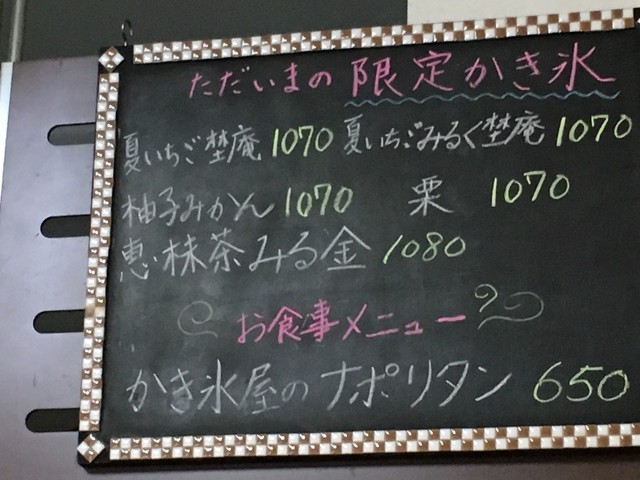 ただいまの 限定かき氷
夏いちご埜庵 1070 夏いちごみるく埜庵 1070
柚子みかん 1070 栗 1070
恵 抹茶みる金 1080
お食事メニュー
かき氷屋のナポリタン 650